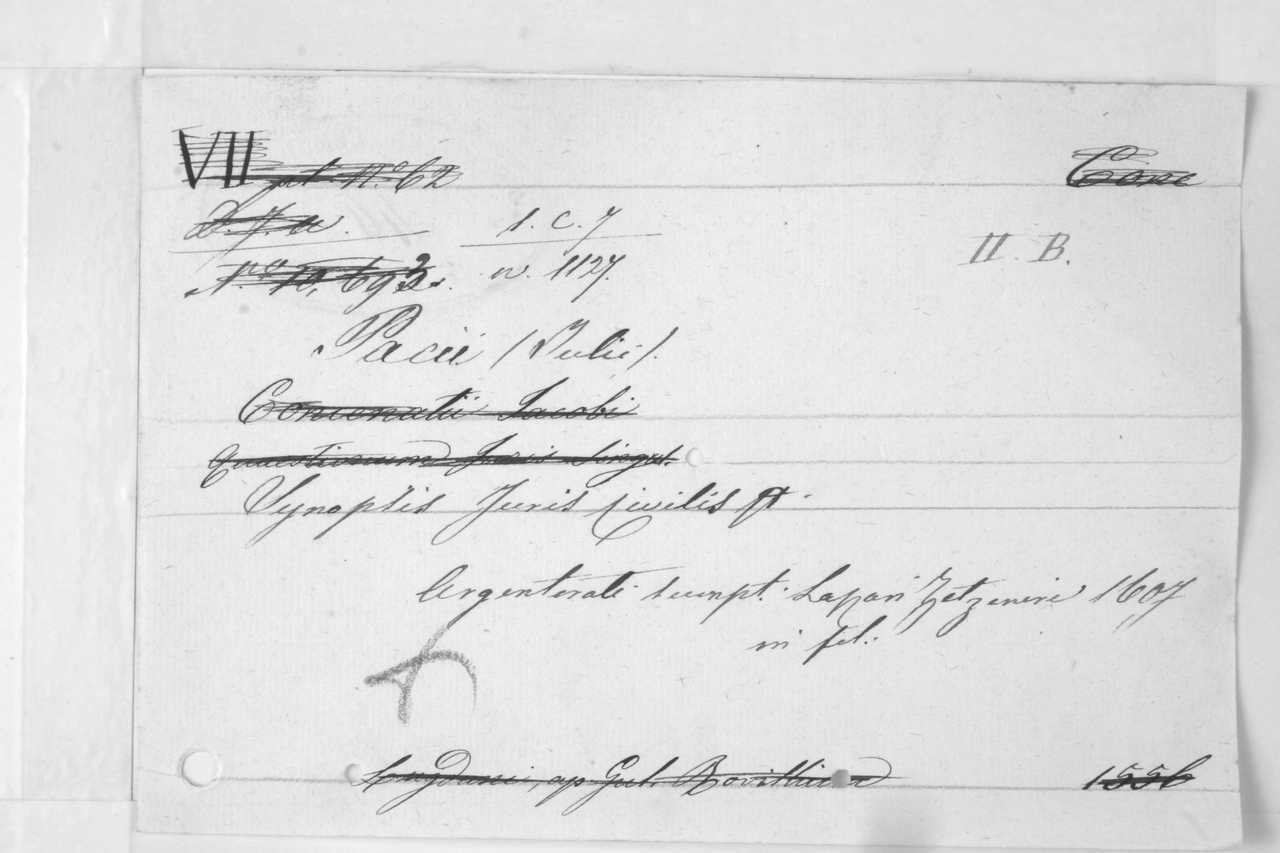 VII pl. N.º 62
Conc
D. J. a. I. C. 7
II. B.
Nº 10,693. n. 1127.
Pacii (Julii).
Concenatii Jacobi
Quaestionum Juris Singul.
Synopsis Juris Civilis
Argentorati sumpt. Lazari Zetzneri 1607
in fol.
Lugduni, ap Gul. Rovillium 1556